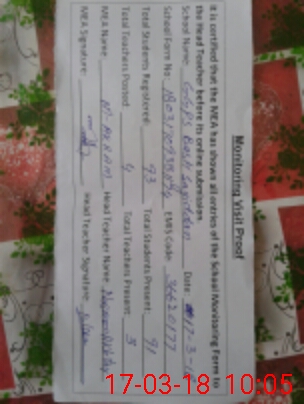 Monitoring Visit Proof
It is certified that the MEA has shows all entries of the School Monitoring Form to
the Head Teacher before its online submission.
School Name: GGPS Date: 17-3-18
School Form No: EMIS Code: 36620177
Total Students Registered: 93 Total Students Present: 91
Total Teachers Posted: 4 Total Teachers Present: 3
MEA Name: Head Teacher Name:
MEA Signature: Head Teacher Signature:
17-03-18 10:05